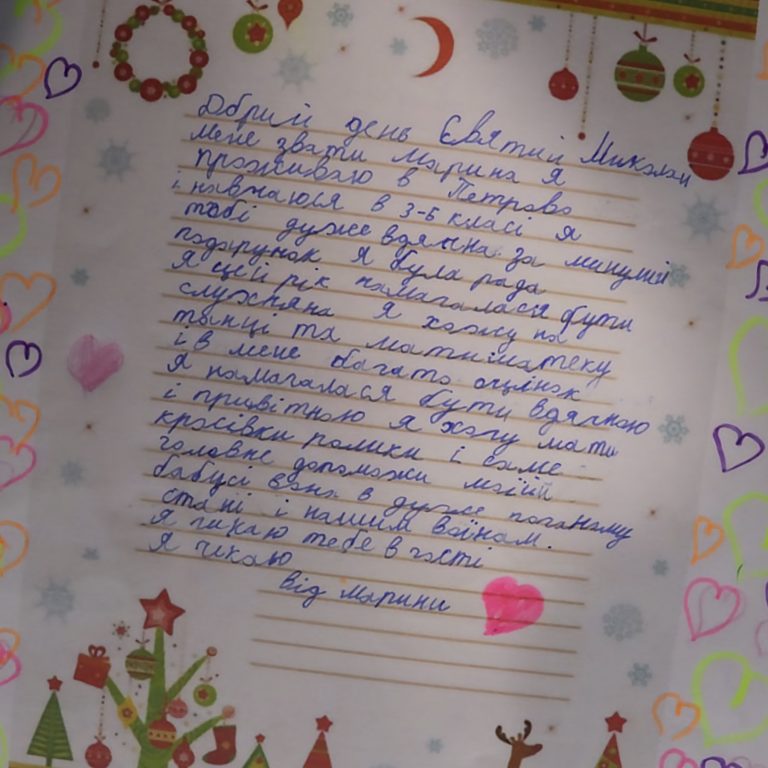 Добрий день Святий Миколай
мене звати Марина Я
проживаю в Петрово
і навчаюся в 3-Б класі Я
тобі дуже вдячна за минулий
подарунок Я була рада
Я цей рік намагалася бути
слухняна Я хожу на
танці та матиматеку
і в мене багато оцінок
Я намагалася бути вдячною
і привітною Я хочу мати
красівки ролики і саме
головне допоможи моїй
бабусі вона в дуже поганому
стані і нашим воїнам.
Я чикаю тебе в гості
Я чикаю
від Марини